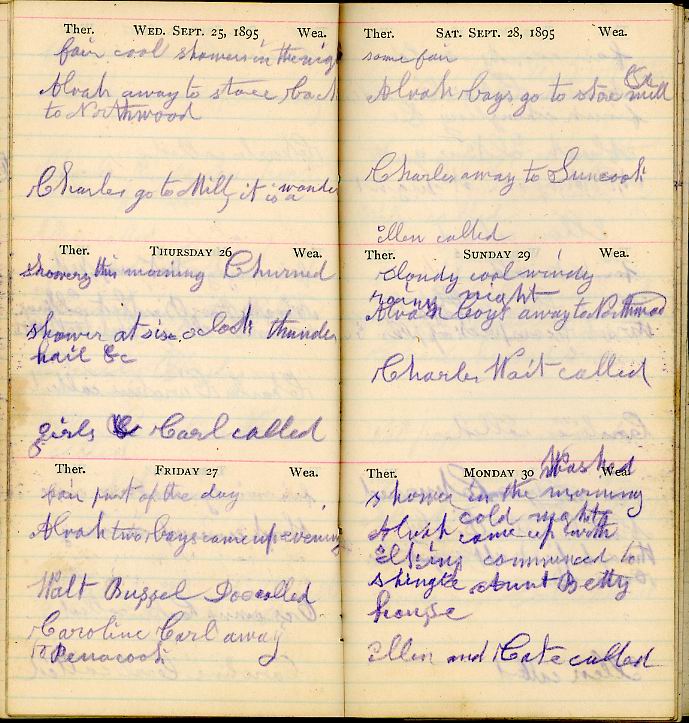 Ther. WED. SEPT. 25, 1895 Wea.
fair cool showers in the nig
Alvah away to store back
to Northwood
Charles go to Mill, it is a wonder
Ther. THURSDAY 26 Wea.
showery this morning Churned
shower at six oclock thunder
hail &c
girls & Carl called
Ther. FRIDAY 27 Wea.
fair part of the day
Alvah two boys came up evening
Walt Buzzel called
Caroline Carl away
to Penacook
Ther. SAT. SEPT. 28, 1895 Wea.
some fair
Alvah boys go to store mill
Charles away to Suncook
Ellen called
Ther. SUNDAY 29 Wea.
cloudy cool windy
rainy night
Alvah boys away to Northwood
Charles Wait called
Ther. MONDAY 30 Wea.
Washed
shower in the morning
cold night
Alvah came up with
commenced to
shingle Aunt Betty
house
Ellen and Cate called